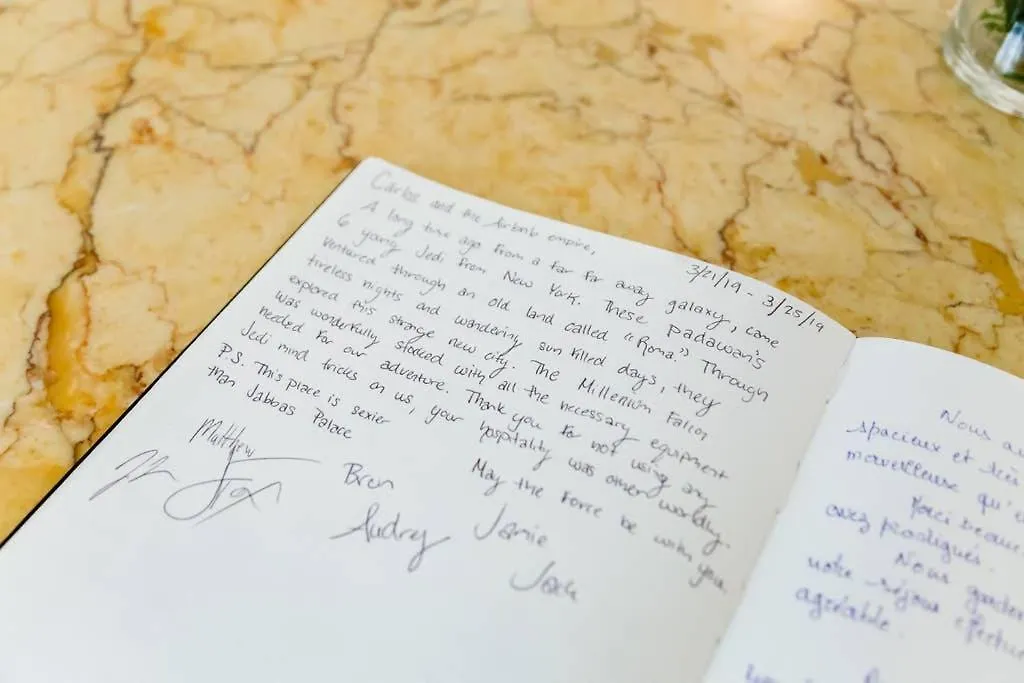 Carlos and the Airbnb empire,
3/21/19 - 3/25/19
A long time ago from a far far away galaxy, came
6 young Jedi from New York. These Padawan's
ventured through an old land called "Roma." Through
tireless nights and wandering sun filled days, they
explored this strange new city. The Millenium Falcon
was wonderfully stocked with all the necessary equipment
needed for our adventure. Thank you for not using any
Jedi mind tricks on us, your hospitality was other worldly.
P.S. This place is sexier
than Jabbas Palace
May the Force be with you
Matthew
Bren
Audrey
Jamie
Nous
spacieux et très
merveilleux qu'
avez prodigués.
Nous
notre séjour
agréable.